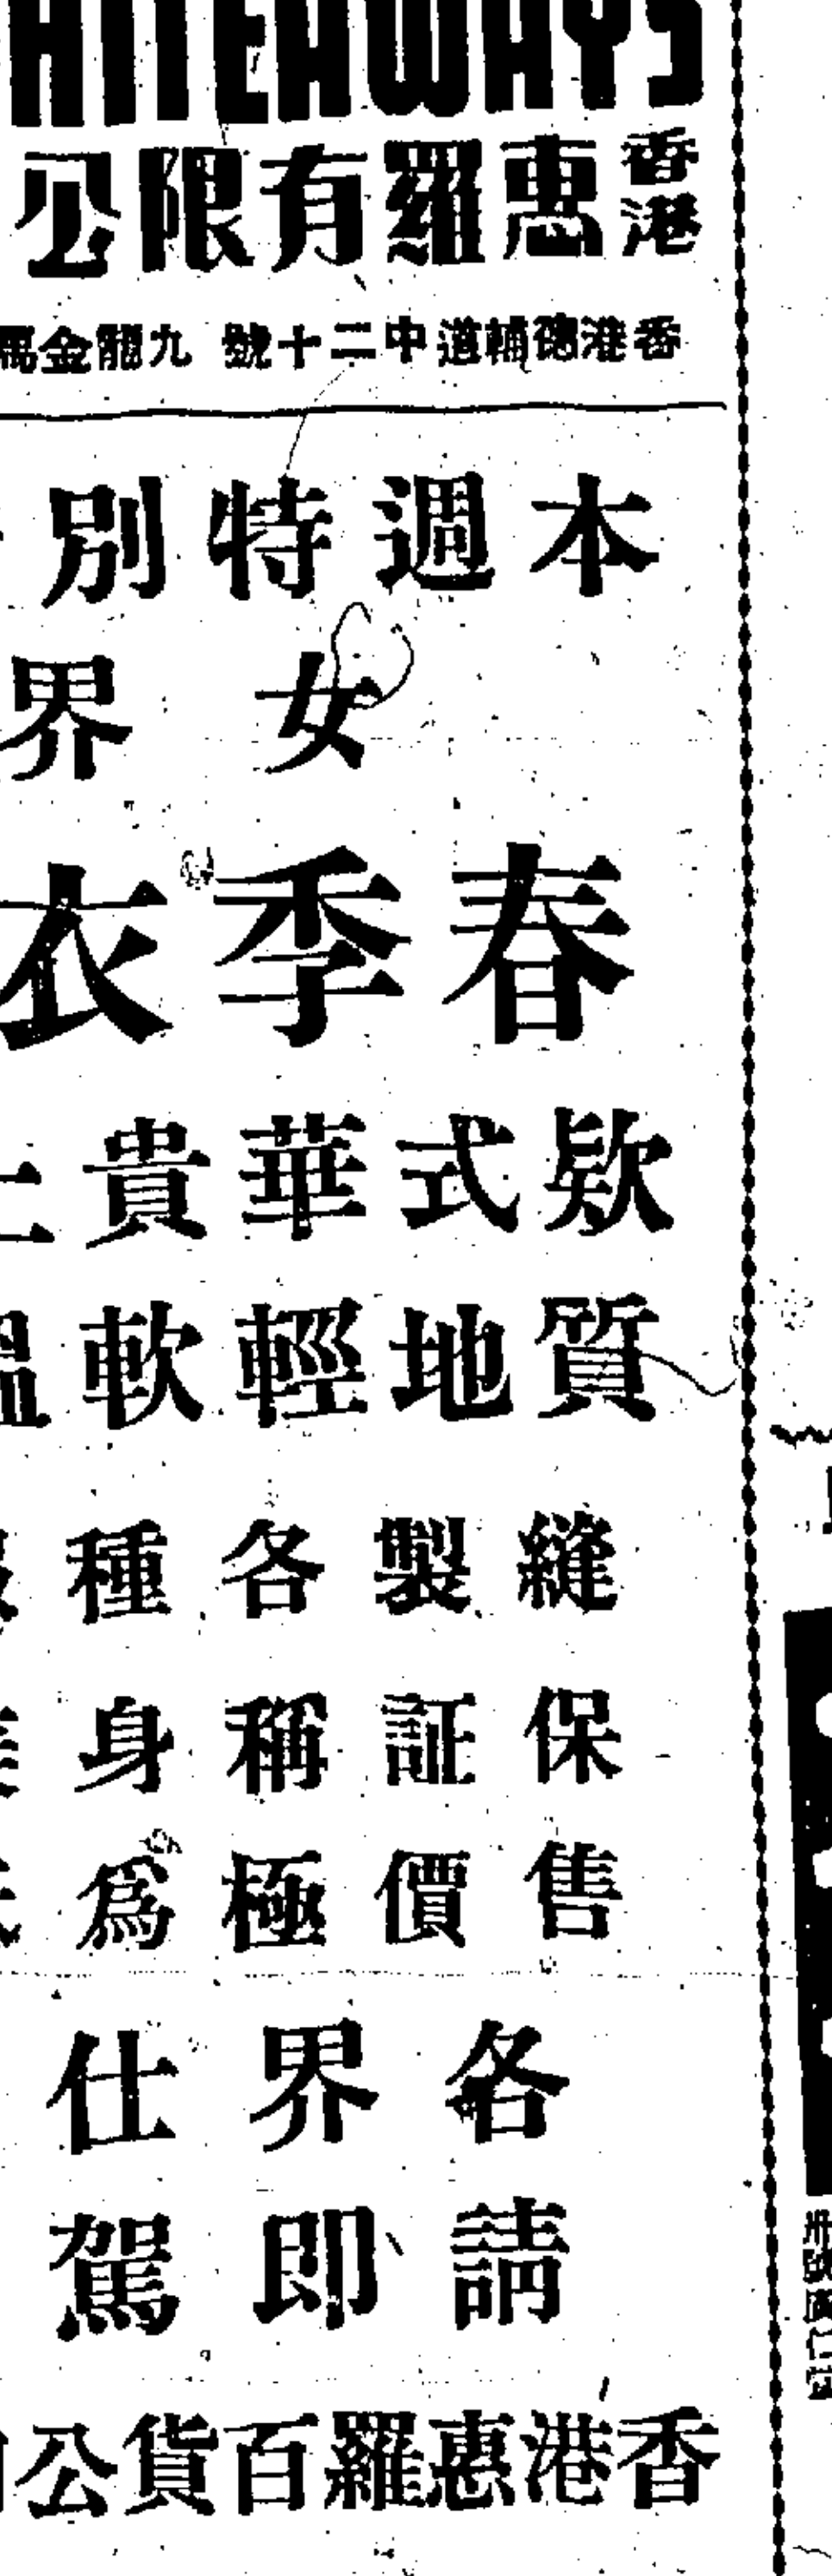 WHITEAWAYS
香港惠羅有限公
香港德輔道中二十號 九龍金馬
本週特別
女界
春季衣
欵式華貴上
質地輕軟溫
縫製各種服
保証稱身
售價極爲
各界仕
請即駕
香港惠羅百貨公司